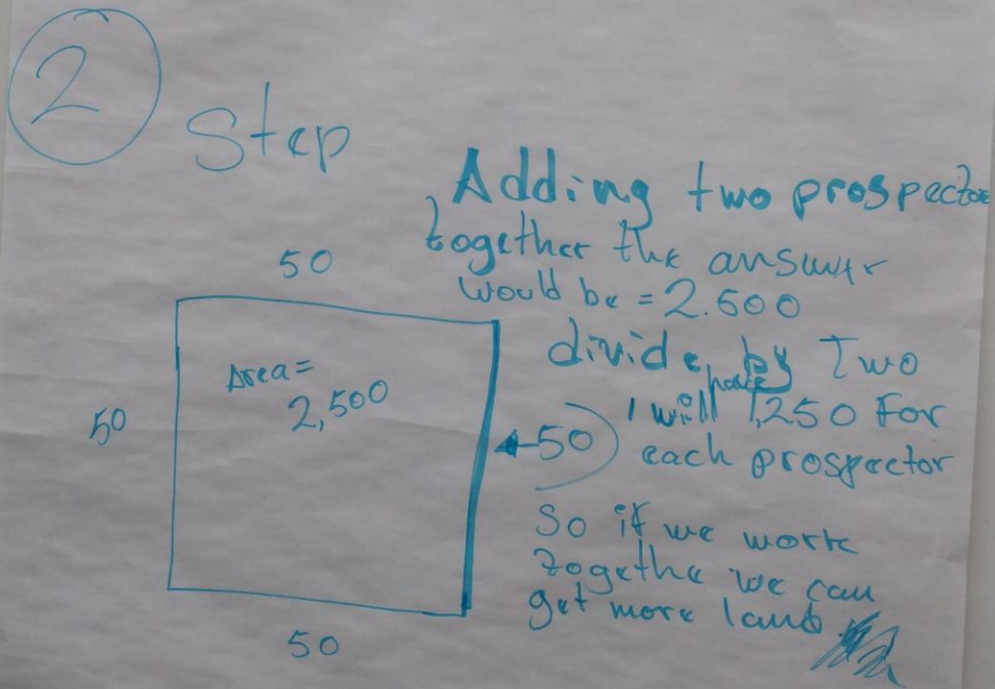 2
Step
Adding two prospector
together the answer
would be = 2.500
divide by Two
I will have 1,250 For
each prospector
So if we work
togethe we can
get more land.
50
Area =
2,500
50
50
50